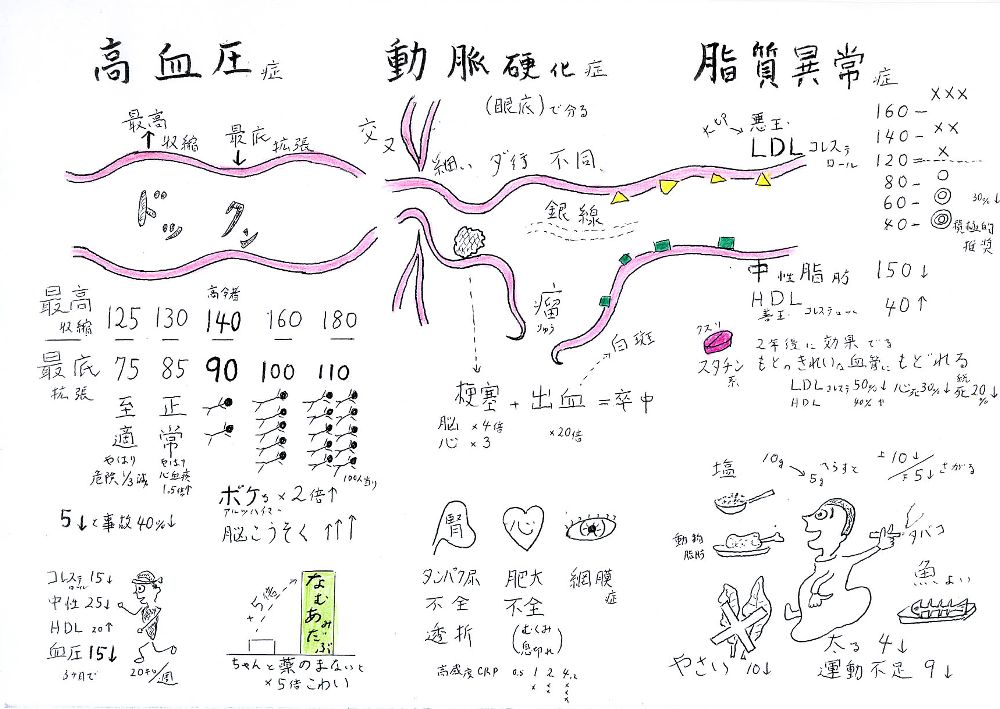 高血圧症
最高
収縮
最底
拡張
ドックン
最高
収縮
125
130
高令者
140
160
180
最底
拡張
75
85
90
100
110
至適
やはり
危険1/3減
正常
やはり
心血疾
1.5倍↑
100人当り
5↓で事故40%↓
ボケも×2倍↑
アルツハイマー
脳こうそく↑↑↑
コレステロール 15↓
中性 25↓
HDL 20↑
血圧 15↓
3ヶ月で
20キロ/週
5倍
なむあみだぶ
ちゃんと薬のまないと
×5倍こわい
動脈硬化症
(眼底)で分る
交叉
細い ダ行 不同
銀線
瘤
りゅう
白斑
梗塞 + 出血 = 卒中
脳 ×4倍
心 ×3
×20倍
腎
心
タンパク尿
不全
透折
肥大
不全
(むくみ
息切れ)
網膜症
高感度CRP 0.5 1 2 4
脂質異常症
悪玉
LDLコレステロール
160 - ×××
140 - ××
120 = ×
80 - ○
60 - ◎ 30%↓
40 - ◎ 積極的推奨
中性脂肪 150↓
HDL 40↑
悪玉 コレステロール
クスリ
スタチン系
2年後に効果でる
もとのきれいな血管にもどれる
LDLコレステ 50%↓ 心死30%↓ 総死20%↓
HDL
塩
10g
5g
へらすと
10↓/5↓さがる
動物脂肪
タバコ
魚よい
やさい 10↓
太る 4↓
運動不足 9↓